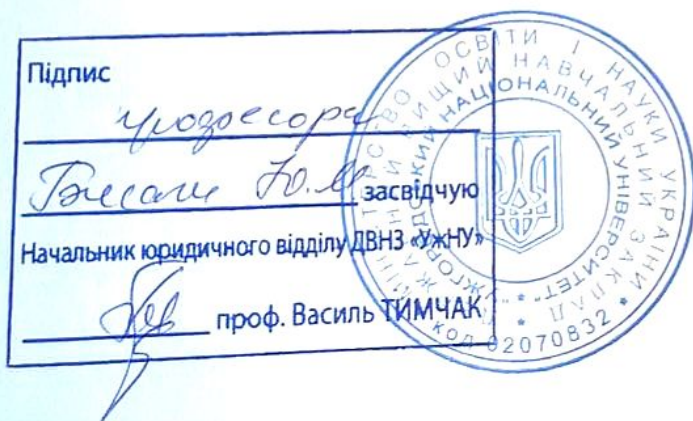 Підпис
професора
Бисаги Ю.М. засвідчую
Начальник юридичного відділу ДВНЗ «УжНУ»
проф. Василь ТИМЧАК
МІНІСТЕРСТВО ОСВІТИ І НАУКИ УКРАЇНИ
ДЕРЖАВНИЙ ВИЩИЙ НАВЧАЛЬНИЙ ЗАКЛАД
"УЖГОРОДСЬКИЙ НАЦІОНАЛЬНИЙ УНІВЕРСИТЕТ"
код 02070832